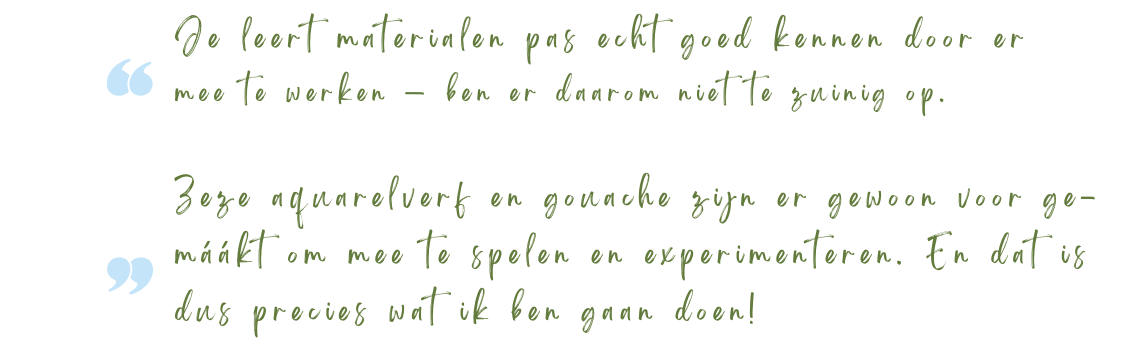 Je leert materialen pas echt goed kennen door er
mee te werken – ben er daarom niet te zuinig op.
Zeze aquarelverf en gouache zijn er gewoon voor ge-
máákt om mee te spelen en experimenteren. En dat is
dus precies wat ik ben gaan doen!